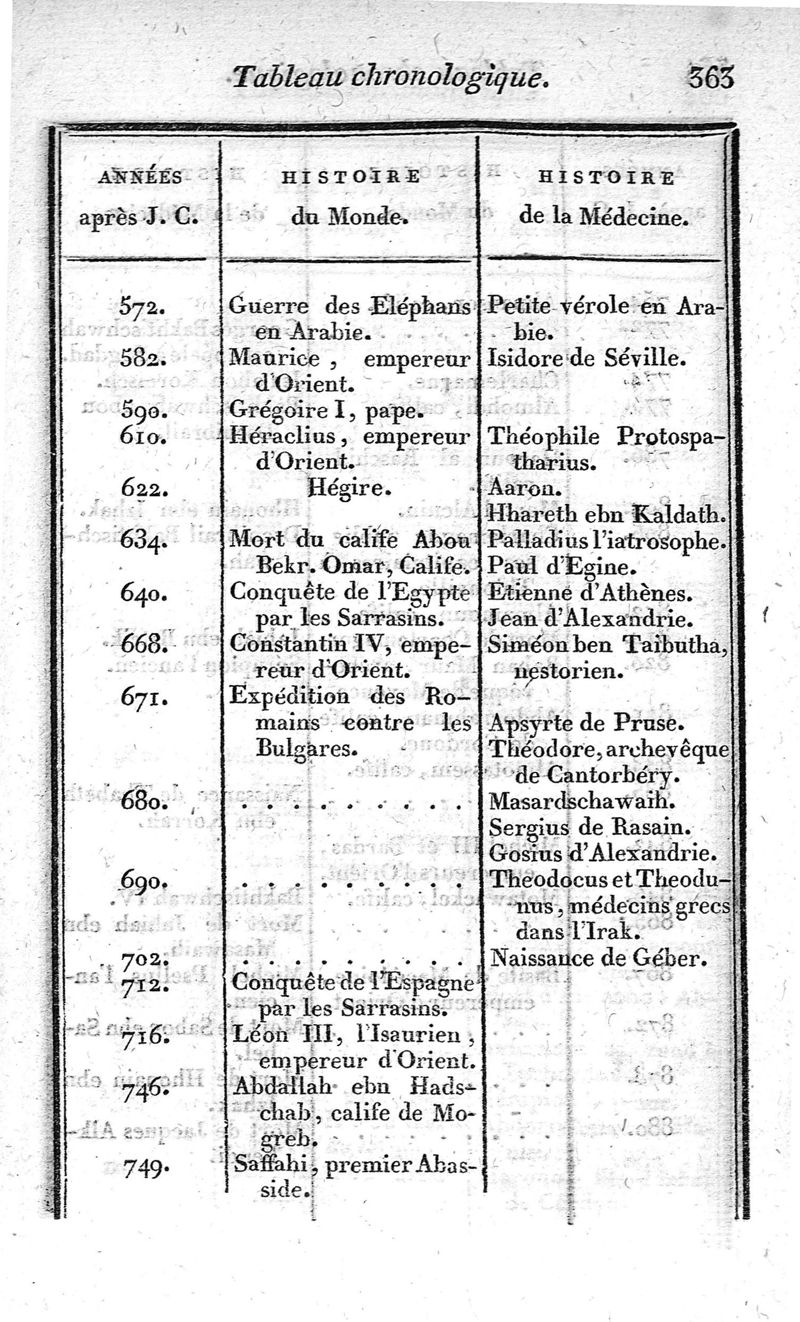 Tableau chronologique. 363
ANNÉES HISTOIRE HISTOIRE
après J. C. du Monde. de la Médecine.
572. Guerre des Eléphans Petite vérole en Ara-
en Arabie. . . . . . bie.
582. Maurice, empereur Isidore de Séville.
d'Orient.
590. Grégoire I, pape.
610. Héraclius, empereur Théophile Protospa-
d'Orient. tharius.
622. Hégire. Aaron.
Hhareth ebn Kaldath.
634. Mort du calife Abou Palladius l'iatrosophe.
Bekr. Omar, Calife. Paul d'Egine.
640. Conquête de l'Egypte Etienne d'Athènes.
par les Sarrasins. Jean d'Alexandrie.
668. Constantin IV, empe- Siméon ben Taibutha,
reur d'Orient. nestorien.
671. Expédition des Ro-
mains contre les Apsyrte de Pruse.
Bulgares. Théodore, archevêque
de Cantorbéry.
680. . . . . . . . . . Masardschawaih.
Sergius de Rasain.
Gosius d'Alexandrie.
690. . . . . . . . . . Theodocus et Theodu-
nus, médecins grecs
dans l'Irak.
702. . . . . . . . . . Naissance de Géber.
712. Conquête de l'Espagne
par les Sarrasins.
716. Léon III, l'Isaurien,
empereur d'Orient.
746. Abdallah ebn Hads-
chab, calife de Mo-
greb.
749. Saffahi, premier Abas-
side.